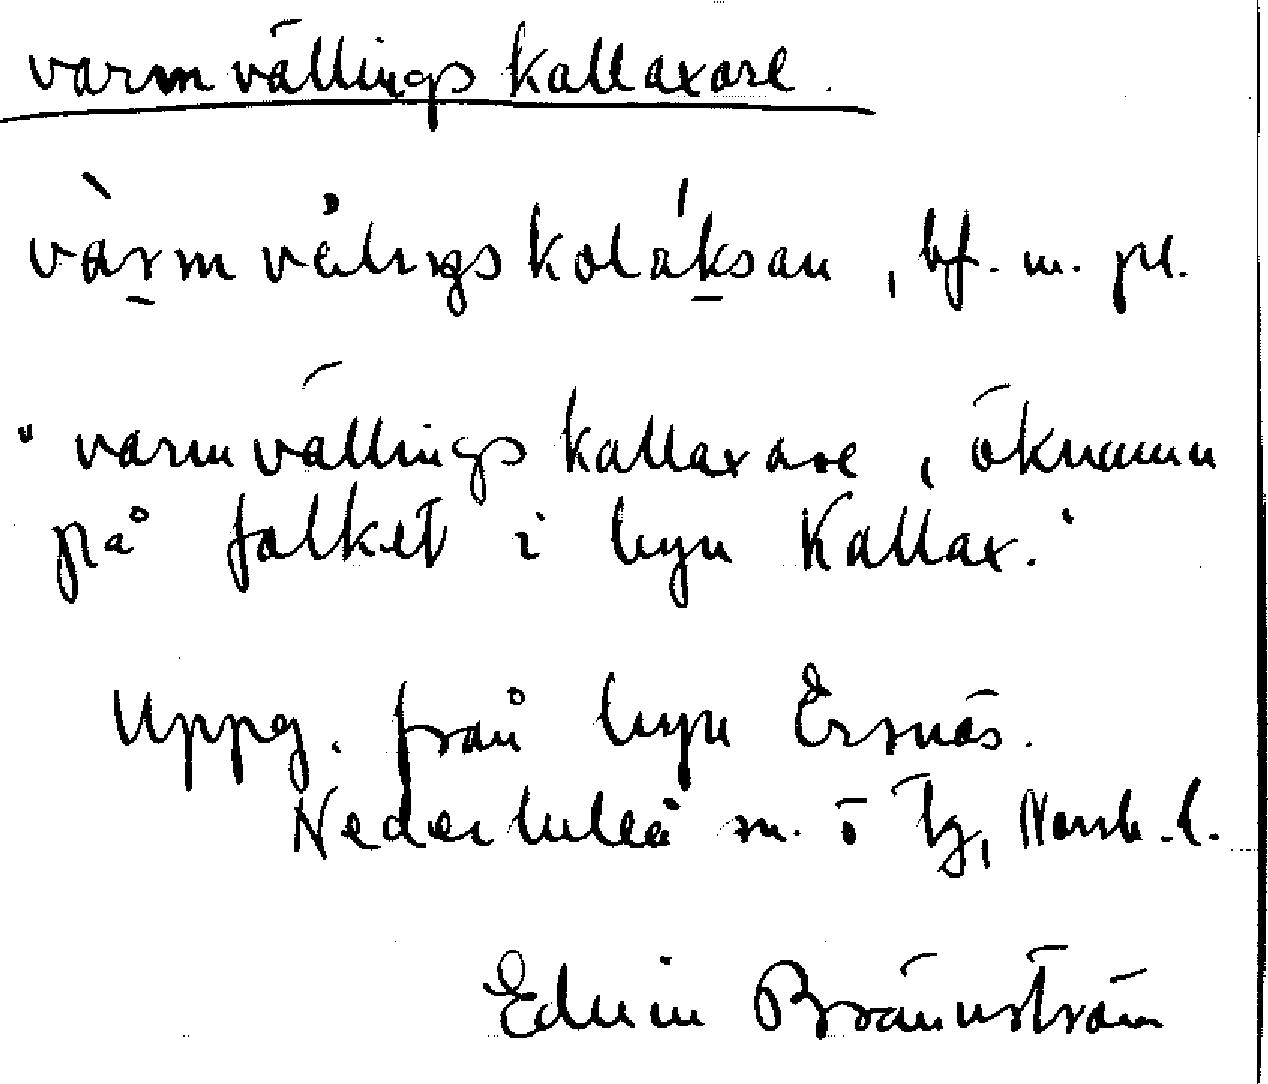 varmvällingskallaxare.
varmvälingskoláksan, bf. m. pl.
"varmvällingskallaxare, öknamn
på folket i byn Kallax."
Uppg. från byn Ersnäs.
Nederluleå sn. ö lg, Norrb.l.
Edvin Brännström